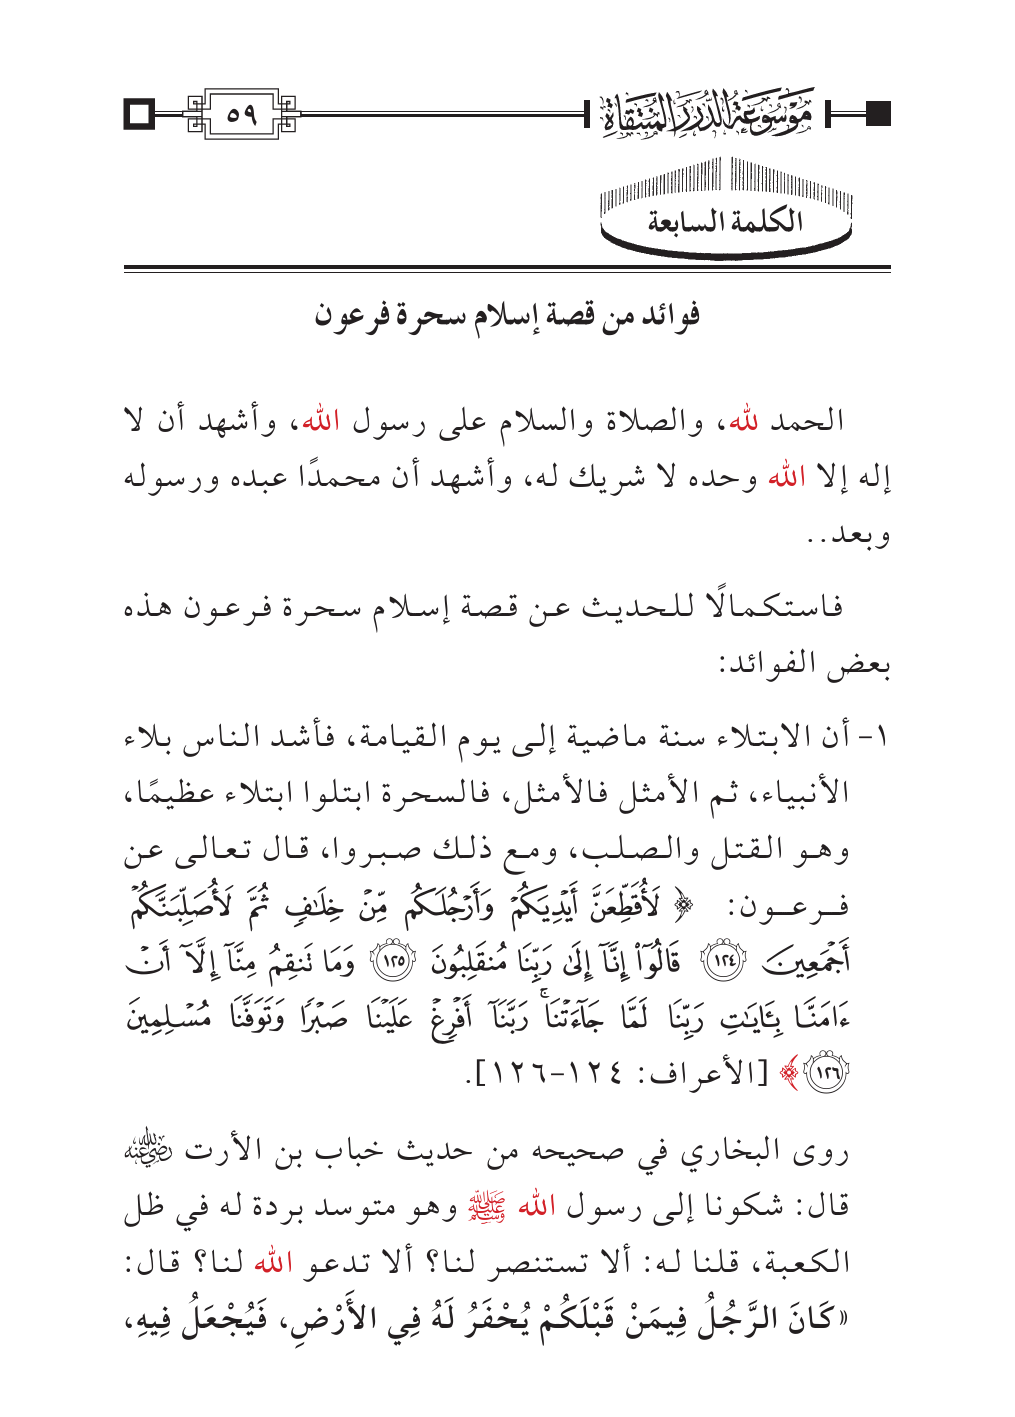 موسوعة الدرر المنتقاة
٥٩
الكلمة السابعة
فوائد من قصة إسلام سحرة فرعون
الحمد لله، والصلاة والسلام على رسول الله، وأشهد أن لا
إله إلا الله وحده لا شريك له، وأشهد أن محمدًا عبده ورسوله
وبعد..
فاستكمالًا للحديث عن قصة إسلام سحرة فرعون هذه
بعض الفوائد:
١- أن الابتلاء سنة ماضية إلى يوم القيامة، فأشد الناس بلاء
الأنبياء، ثم الأمثل فالأمثل، فالسحرة ابتلوا ابتلاء عظيمًا،
وهو القتل والصلب، ومع ذلك صبروا، قال تعالى عن
فرعون: ﴿ لَأُقَطِّعَنَّ أَيْدِيَكُمْ وَأَرْجُلَكُم مِّنْ خِلَٰفٍ ثُمَّ لَأُصَلِّبَنَّكُمْ
أَجْمَعِينَ ١٢٤ قَالُوٓا۟ إِنَّآ إِلَىٰ رَبِّنَا مُنقَلِبُونَ ١٢٥ وَمَا تَنقِمُ مِنَّآ إِلَّآ أَنْ
ءَامَنَّا بِـَٔايَٰتِ رَبِّنَا لَمَّا جَآءَتْنَا ۚ رَبَّنَآ أَفْرِغْ عَلَيْنَا صَبْرًا وَتَوَفَّنَا مُسْلِمِينَ
١٢٦ ﴾ [الأعراف: ١٢٤-١٢٦].
روى البخاري في صحيحه من حديث خباب بن الأرت رضي الله عنه
قال: شكونا إلى رسول الله ﷺ وهو متوسد بردة له في ظل
الكعبة، قلنا له: ألا تستنصر لنا؟ ألا تدعو الله لنا؟ قال:
«كَانَ الرَّجُلُ فِيمَنْ قَبْلَكُمْ يُحْفَرُ لَهُ فِي الأَرْضِ، فَيُجْعَلُ فِيهِ،